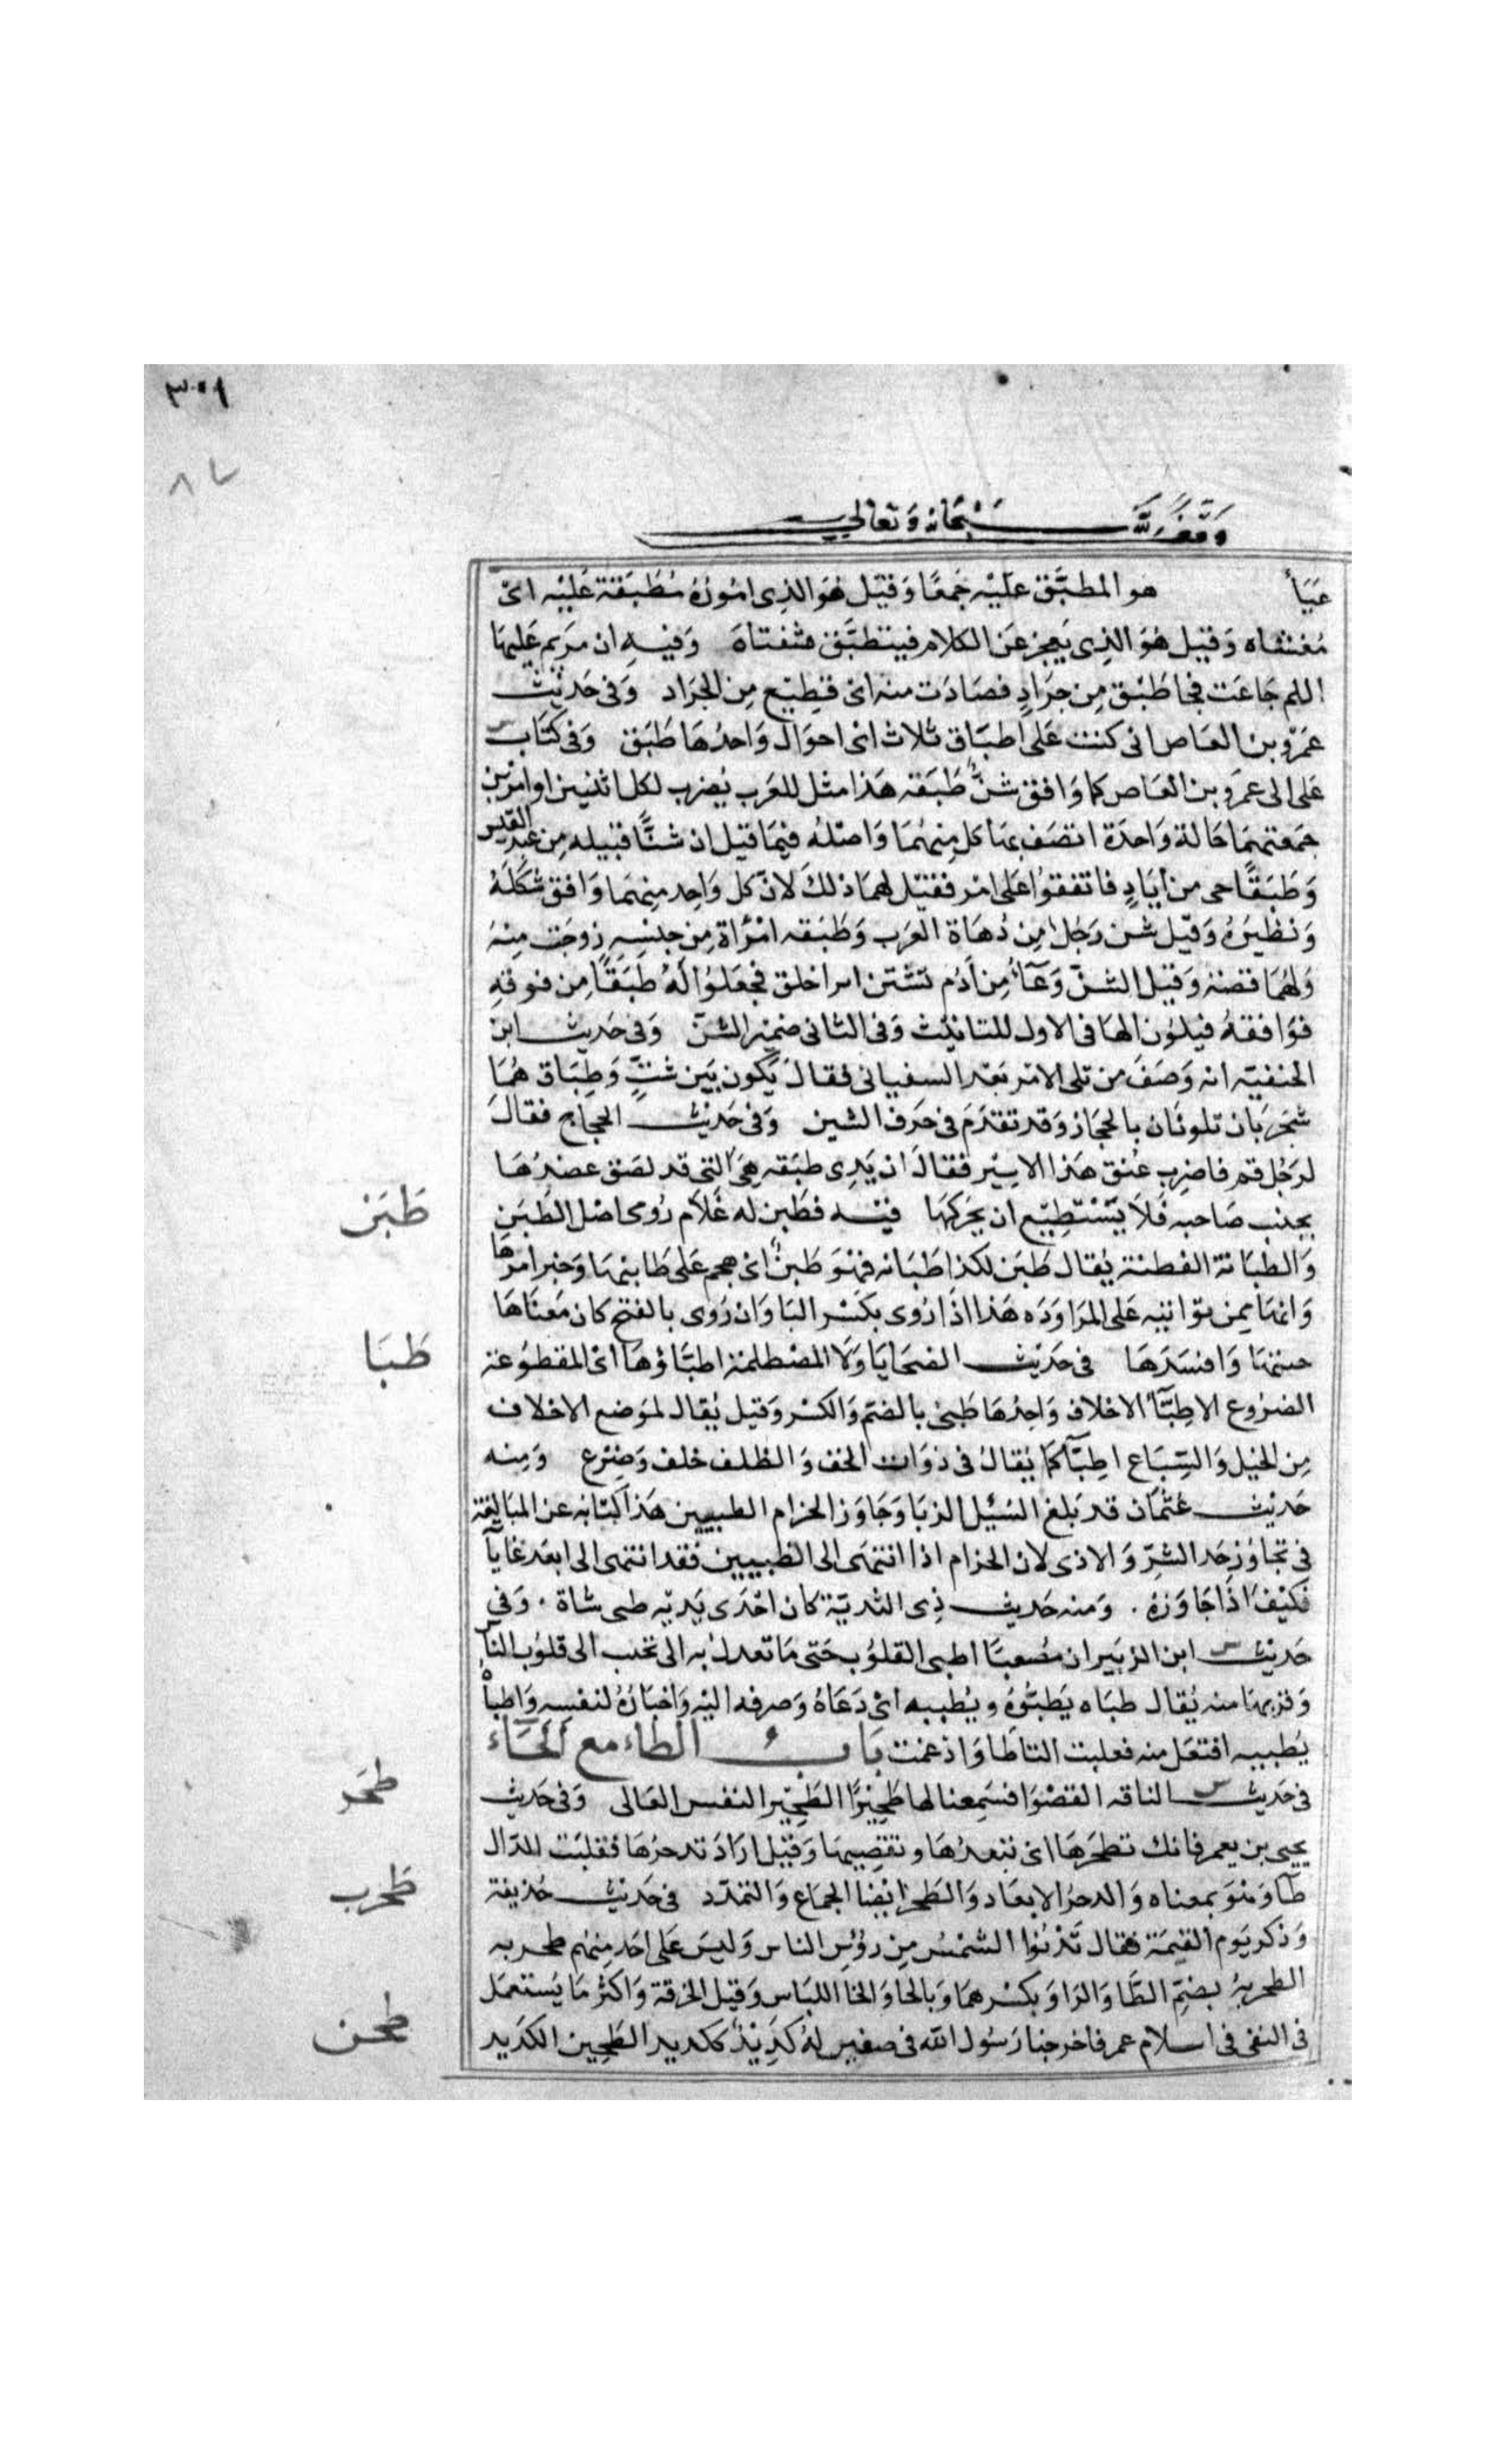 ٣٠٩
٨٧
وقف لله سبحانه وتعالى
عَيَاءُ هو المطبَّق عَلَيْه حُمقًا وَقيْل هُوَ الذِى امُورُهُ مُطْبَقَة عَليْه اىْ
مُغَشَّاه وَقيْل هُوَ الذِى يَعِجزعَن الكلام فينطبَّق شفتاهَ وَفيهِ ان مرَيم عَليهَا
السلم جَاعَت فجا طَبْق مِن جرَادٍ فصَادَت منه اىْ قطِيْع مِن الجرَاد وَفى حَديْث
عَمرو بن العَاص انى كنت عَلى اطبَاق ثلاث اىْ احوَال وَاحدُهَا طَبَق وَفى كتَاب
على الى عمَرو بن العَاص كما وَافق شنٌّ طَبَقه هَذا مثل للعَرب يُضرب لكل اثنيين اوامْرين
جمَعتهمَا حَالة وَاحدَة اتصَف بهَا كل مِنهُمَا وَاصْلهُ فيمَا قيْل ان شنًّا قبيله مِن عبد القيس
وَطَبَقًا حى من ايَادٍ فاتفقوُا عَلى امْر فقيْل لهما ذلكَ لانّ كل وَاحِد مِنهمَا وَافق شكلَهُ
وَنظيَرهُ وَقيْل شن رَجُل مِن دُهَاة العَرب وَطَبَقه امْرَأة مِن جنسِهِ زوجَت مِنهُ
وَلهُمَا قصَّة وَقيْل الشنّ وَعَآءٌ مِن اَدُم تشنن اى اخلق فجعَلوُا لهُ طبَقًا مِن فوقهِ
فوَافقهُ فيكُون الهَا فى الاول للتانيْث وَفى الثانى ضميْر الشنّ وَفى حَديث ابن
الحنفيَه انه وَصَفَ من تلى الامْر بَعْد السفيانى فقالَ يَكون بَين شثٍّ وَطِبَاق هُمَا
شجَرتَان تكونَان بالحجَاز وَقد تقدّمَ فى حَرف الشين وَفى حَديْث الحجاج فقالَ
لرَجُل قم فاضرب عُنق هَذا الاسِيْر فقالَ ان يَدِى طبَقه هِىَ التى قد لصَق عضدُهَا
بجنب صَاحبه فَلاَ يَسْتطِيْع ان يَحرّكهَا فيْه فطَبن له غُلاَم رُومى اصْل الطَبَن
وَالطبَانة الفطنة يُقال طبَن لكذا طَبَانه فهْوَ طَبنٌ اىْ هجم عَلى طابنهَا وَخبر امرهَا
وَانهَا ممن تواتيه عَلى المرَاوَدَه هَذا اذَا رُوى بكَسْر البَا وَان رُوى بالفتح كان مَعنَاهَا
خببهَا وَافسَدَهَا فى حَديْث الضحَايَا وَلاَ المصْطلمة اطبَاؤهَا اىْ المقطوُعَة
الضرُوع الاطِبَّآءُ الاخلاف وَاحِدهَا طبىْ بالضم وَالكسْر وَقيل يُقال لموَضع الاخلاف
مِن الخيل وَالسِّبَاع اطِبَّآ كمَا يُقالُ فى ذوَات الخف وَالظلف خلف وَضرْع وَمِنه
حَديْث عُثمَان قد بَلغ السَيْل الزبَا وَجَاوَز الحزام الطبيين هَذا كنَايه عن المبَالغة
فى تجاوُز حَد الشرّ وَالاذى لان الحزام اذا انتهَى الى الطبيين فقد انتهى الى ابعَد غاياَ
فكيْف اذَا جَاوَزهُ . وَمنه حَديث ذِى الثديّة كان احْدَى يَديْه طبى شاة . وَفى
حَديْث ابن الزبَير ان مصُعبَا اطبى القلوُب حَتى مَا تعدل به اى تحبب الى قلوُب الناس
وَقرّبهَا منه يُقال طبَاه يَطبُوُهُ ويُطبيه اىْ دَعَاهُ وَصرفه اليْه وَاختَارَهُ لنفسِه وَاطباه
يُطبيه افتعَل منه فعلبت التا طَا وَاذغمت بَابُ الطاء مع الحَاء
فى حَديْث الناقه القصْوَا فسَمِعنا لها طَحِيْرًا الطَحِيْر النفس العَالى وَفى حَديث
يحيى بن يعمر فانك تطحَرهَا اىْ تبعدُهَا وتقصِيهَا وَقيل ارَادَ تدحرُهَا فقلبَت الدّال
طَآ وَهوَ بمعناه وَالدحرُ الابعَاد وَالطحرُ ايْضا الجمَاع وَالتمدّد فى حَديْث حُذيفة
وَذكر يَوم القيمَة فقال تَدْنوُا الشمْسُ مِن رؤُسِ الناس وَليسَ عَلى احَد مِنهُم طحربه
الطحربهُ بضمّ الطَا وَالرَا وَ بكسْرهمَا وَبالحَا وَالخا اللبَاس وَقيل الخِرقة وَاكثرُ مَا يُستعمَل
فى النفى فى اسلام عمر فاخرجنا رَسُول الله فى صفين لهُ كَدِيْدٌ ككديد الطَحِين الكَديد
طَبَن
طَبَا
طحَر
طحرب
طحن